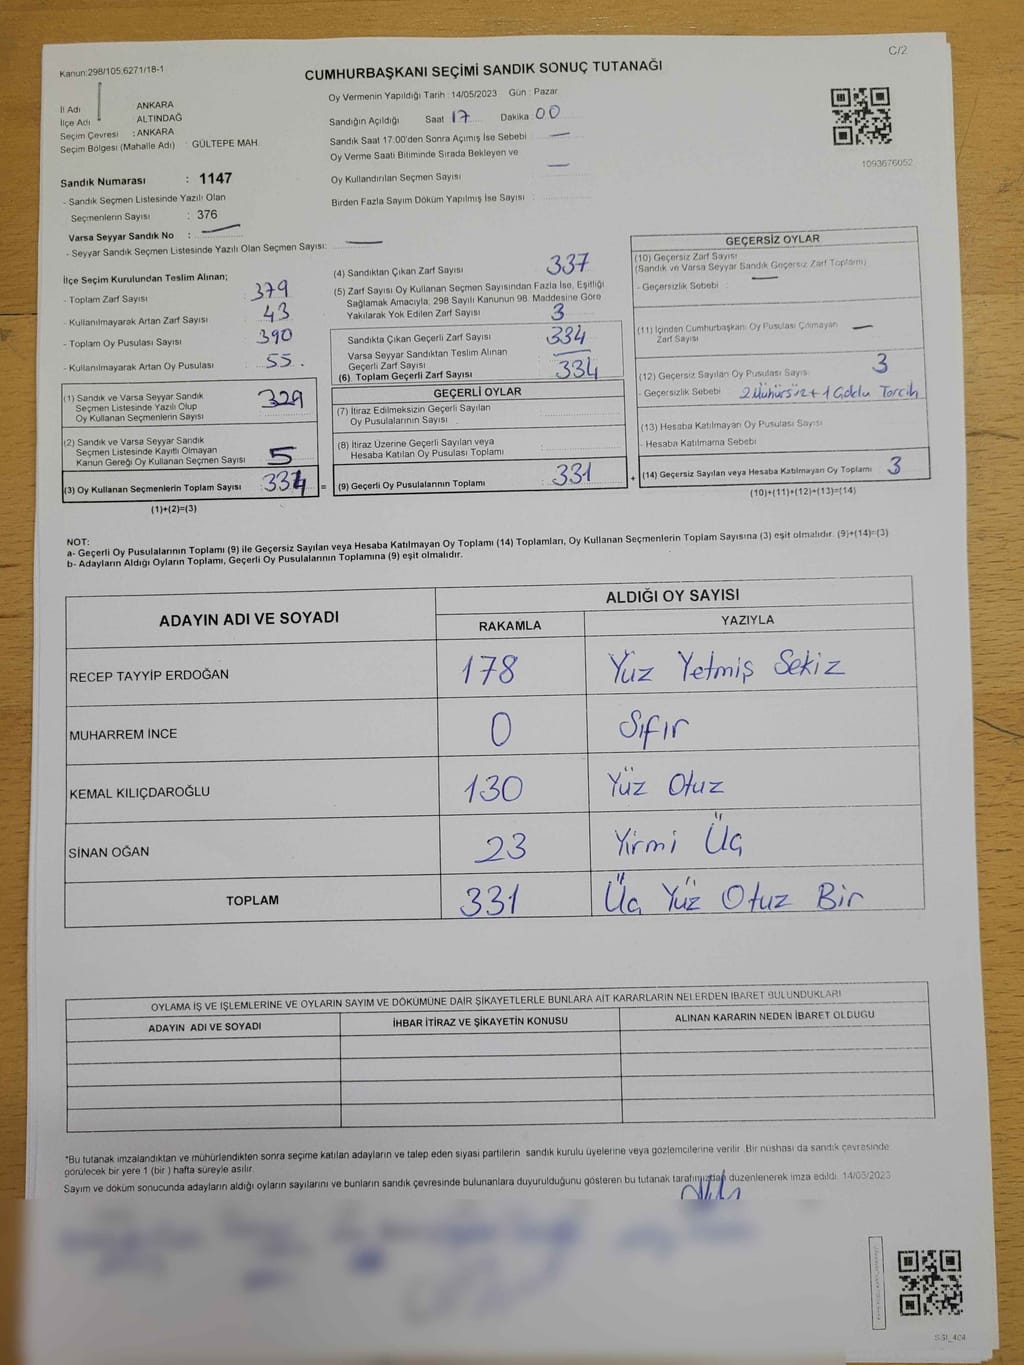 C/2
Kanun:298/105,6271/18-1
CUMHURBAŞKANI SEÇİMİ SANDIK SONUÇ TUTANAĞI
İl Adı ANKARA
İlçe Adı ALTINDAĞ
Seçim Çevresi : ANKARA
Seçim Bölgesi (Mahalle Adı) : GÜLTEPE MAH.
Sandık Numarası : 1147
- Sandık Seçmen Listesinde Yazılı Olan
Seçmenlerin Sayısı : 376
Varsa Seyyar Sandık No : —
- Seyyar Sandık Seçmen Listesinde Yazılı Olan Seçmen Sayısı: —
Oy Vermenin Yapıldığı Tarih : 14/05/2023 Gün : Pazar
Sandığın Açıldığı Saat 17 Dakika 00
Sandık Saat 17.00'den Sonra Açımış İse Sebebi —
Oy Verme Saati Bitiminde Sırada Bekleyen ve
Oy Kullandırılan Seçmen Sayısı —
Birden Fazla Sayım Döküm Yapılmış İse Sayısı :
1093676052
İlçe Seçim Kurulundan Teslim Alınan;
- Toplam Zarf Sayısı 379
- Kullanılmayarak Artan Zarf Sayısı 43
- Toplam Oy Pusulası Sayısı 390
- Kullanılmayarak Artan Oy Pusulası 55
(1) Sandık ve Varsa Seyyar Sandık
Seçmen Listesinde Yazılı Olup
Oy Kullanan Seçmenlerin Sayısı 329
(2) Sandık ve Varsa Seyyar Sandık
Seçmen Listesinde Kayıtlı Olmayan
Kanun Gereği Oy Kullanan Seçmen Sayısı 5
(3) Oy Kullanan Seçmenlerin Toplam Sayısı 334 =
(1)+(2)=(3)
(4) Sandıktan Çıkan Zarf Sayısı 337
(5) Zarf Sayısı Oy Kullanan Seçmen Sayısından Fazla İse, Eşitliği
Sağlamak Amacıyla; 298 Sayılı Kanunun 98. Maddesine Göre
Yakılarak Yok Edilen Zarf Sayısı 3
Sandıkta Çıkan Geçerli Zarf Sayısı 334
Varsa Seyyar Sandıktan Teslim Alınan
Geçerli Zarf Sayısı —
(6) Toplam Geçerli Zarf Sayısı 334
GEÇERLİ OYLAR
(7) İtiraz Edilmeksizin Geçerli Sayılan
Oy Pusulalarının Sayısı
(8) İtiraz Üzerine Geçerli Sayılan veya
Hesaba Katılan Oy Pusulası Toplamı
(9) Geçerli Oy Pusulalarının Toplamı 331 +
GEÇERSİZ OYLAR
(10) Geçersiz Zarf Sayısı
(Sandık ve Varsa Seyyar Sandık Geçersiz Zarf Toplamı) —
- Geçersizlik Sebebi :
(11) İçinden Cumhurbaşkanı Oy Pusulası Çıkmayan
Zarf Sayısı —
(12) Geçersiz Sayılan Oy Pusulası Sayısı 3
- Geçersizlik Sebebi 2 Mühürsüz + 1 Çoklu Tercih
(13) Hesaba Katılmayan Oy Pusulası Sayısı
- Hesaba Katılmama Sebebi
(14) Geçersiz Sayılan veya Hesaba Katılmayan Oy Toplamı 3
(10)+(11)+(12)+(13)=(14)
NOT:
a- Geçerli Oy Pusulalarının Toplamı (9) ile Geçersiz Sayılan veya Hesaba Katılmayan Oy Toplamı (14) Toplamları, Oy Kullanan Seçmenlerin Toplam Sayısına (3) eşit olmalıdır. (9)+(14)=(3)
b- Adayların Aldığı Oyların Toplamı, Geçerli Oy Pusulalarının Toplamına (9) eşit olmalıdır.
ADAYIN ADI VE SOYADI ALDIĞI OY SAYISI
RAKAMLA YAZIYLA
RECEP TAYYİP ERDOĞAN 178 Yüz Yetmiş Sekiz
MUHARREM İNCE 0 Sıfır
KEMAL KILIÇDAROĞLU 130 Yüz Otuz
SİNAN OĞAN 23 Yirmi Üç
TOPLAM 331 Üç Yüz Otuz Bir
OYLAMA İŞ VE İŞLEMLERİNE VE OYLARIN SAYIM VE DÖKÜMÜNE DAİR ŞİKAYETLERLE BUNLARA AİT KARARLARIN NELERDEN İBARET BULUNDUKLARI
ADAYIN ADI VE SOYADI İHBAR İTİRAZ VE ŞİKAYETİN KONUSU ALINAN KARARIN NEDEN İBARET OLDUĞU
*Bu tutanak imzalandıktan ve mühürlendikten sonra seçime katılan adayların ve talep eden siyasi partilerin sandık kurulu üyelerine veya gözlemcilerine verilir. Bir nüshası da sandık çevresinde
görülecek bir yere 1 (bir) hafta süreyle asılır.
Sayım ve döküm sonucunda adayların aldığı oyların sayılarını ve bunların sandık çevresinde bulunanlara duyurulduğunu gösteren bu tutanak tarafımızdan düzenlenerek imza edildi. 14/05/2023
SSI_404